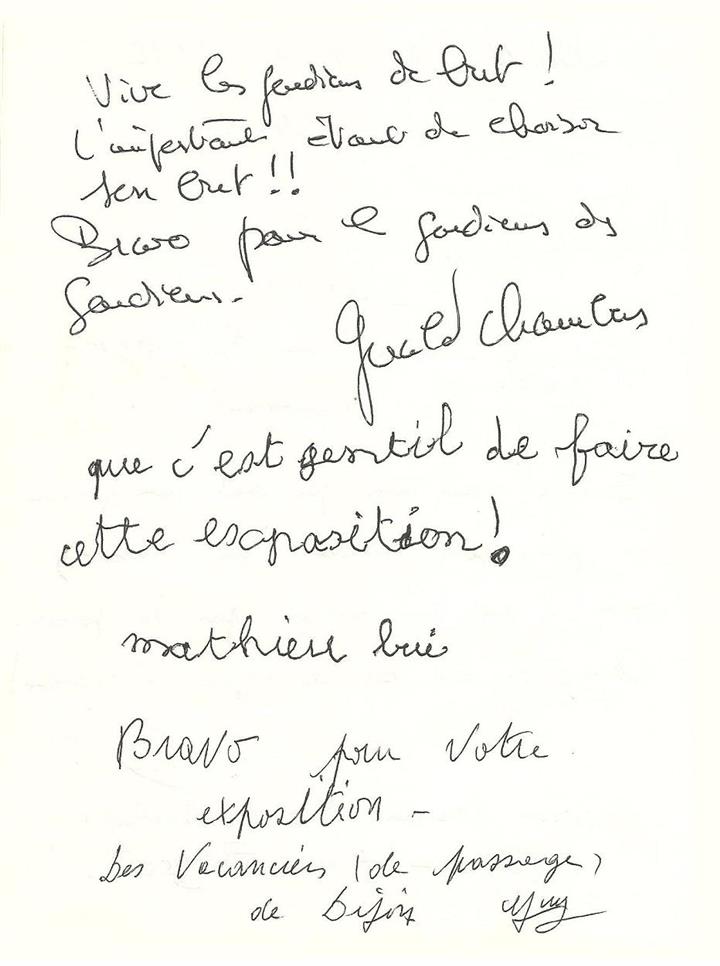 Vive les gardiens de but !
L'important étant de choisir
son but !!
Bravo pour le gardiens des
gardiens.
Gerald Chambers
que c'est gentil de faire
cette exposition !
mathieu brié
Bravo pour votre
exposition -
Des Vacanciers (de passage)
de Dijon